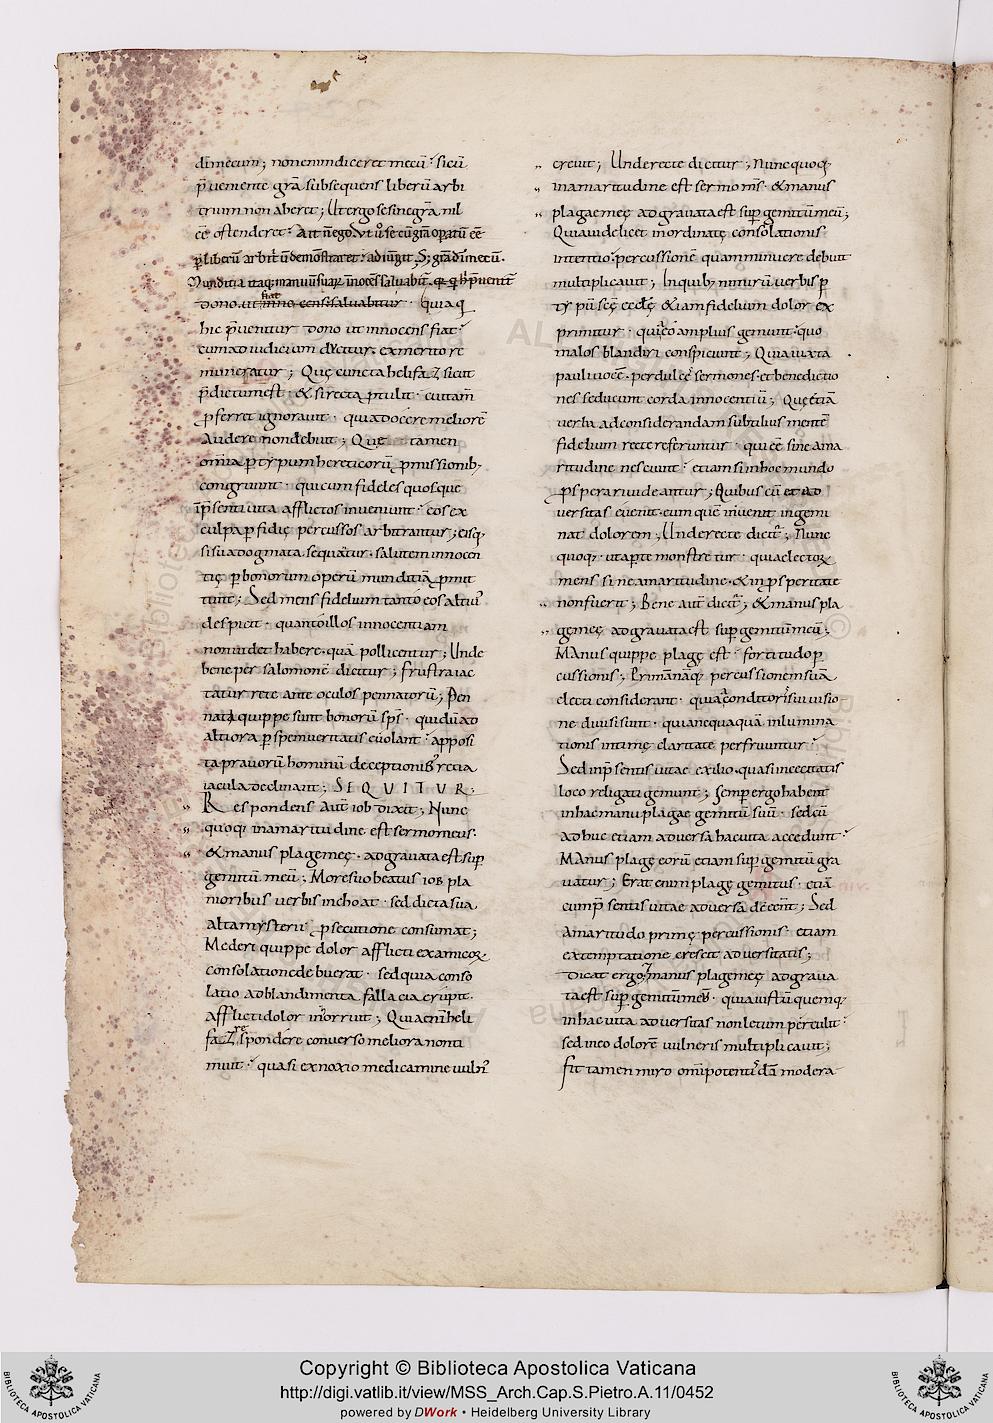 dī mecum; non enim diceret mecū. si cū
p̄veniente grā subsequens liberū arbi
trium non aberet; Ut ergo se sine grā nil
eē ostenderet. Ait n̄ ego. Ut v̊ se cū grā operatū eē
p̱ liberū arbit̄ ū demonstraret. adiūgit. S; grā dī mecū.
Munditia itaq; manuū suar̄ īnocēs salvabit̄. q̄ q̇ hic p̄venit̄
dono. ut fiat innocens salvabitur. quia q
hic p̄venitur dono ut innocens fiat.
cum ad iudicium ducitur. ex merito re
muneratur; Quę cuncta helifaz sicut
p̄dictum est. & si recta ꝓtulit. cui tam̄
ꝓferret ignoravit. quia docere meliorē
audere non debuit; Quę tamen
om̄ia p̱ typum hereticorū ꝓmissionib;
congruunt. qui cum fideles quosque
ī p̄senti vita afflictos inveniunt. eos ex
culpa p̱fidię percussos arbitrantur; eisq;
si sua dogmata sequant̄ur. salutem innocen
tię p̱ bonorum operū munditiā ꝓmit
tunt; Sed mens fidelium tanto eos altiꝰ
despicit. quanto illos innocentiam
non videt habere. quā pollicentur; Unde
bene per salomonē dicitur; frustra iac
tatur rete ante oculos pennatorū; Pen
nata quippe sunt bonorū sp̄s. qui dū ad
altiora p̱ spem veritatis evolant. apposi
ta pravorū hominū deceptionis retia
iacula declinant; SEQUITUR;
Respondens aut̄ iob dixit; Nunc
quoq; in amaritudine est sermo meus.
& manus plagę meę. adgravata est sup̱
gemitū meū; More suo beatus iob pla
nioribus verbis inchoat. sed dicta sua
alta mysterii ꝓsecutione consumat;
Mederi quippe dolor afflicti ex amicoꝝ
consolatione debuerat. sed quia conso
latio ad blandimenta fallacia erupit.
afflicti dolor inorruit; Quia enī heli
faz respondere converso meliora non ti
muit. quasi ex noxio medicamine vulnꝰ
crevit; Unde recte dicitur; Nunc quoq;
in amaritudine est sermo m̄s. & manus
plagae meę adgravata est sup̱ gemitū meū;
Quia videlicet inordinatę consolationis
intentio. percussionē quam minuere debuit
multiplicavit; In quib; nimirū verbis p̱
typū scę ecclę & iam fidelium dolor ex
primitur. qui eo amplius gemunt. quo
malos blandiri conspiciunt; Quia iuxta
pauli vocē. per dulcę sermones. et benedictio
nes seducunt corda innocentiū; Quę etiā
verba ad considerandam subtilius mentē
fidelium recte referuntur. qui eē sine ama
ritudine nesciunt. etiam si in hoc mundo
ꝓspera rivideantur; Quibus cū et ad
versitas evenit. eum quē invenit ingemi
nat dolorem; Unde recte dicit̄; Nunc
quoq;. ut aperte monstretur. quia electoꝝ
mens sine amaritudine. & in ꝓsperitate
non fuerit; Bene aut̄ dicit̄; & manus pla
gę meę adgravata est sup̱ gemitū meū;
Manus quippe plagę est. fortitudo p̱
cussionis; Primā namq; percussionem suā
electi considerant. quia a conditoris sui visio
ne divisi sunt. quia nequaquā inlumina
tionis intimę claritate perfruuntur.
Sed in p̄sentis vitae exilio. quasi in cecitatis
loco religati gemunt; Semp̱ ergo habent
in hac manu plagae gemitū suū. sed cū
adhuc etiam adversa hac vita accedunt.
Manus plagę eorū etiam sup̱ gemitū gra
vatur; Erat enim plagę gemitus. etiā
cum p̄sentis vitae adversa deeent; Sed
amaritudo primę percussionis. etiam
ex temptatione crescit adversitatis;
Dicat ergo; manus plagę meę adgrava
ta est sup̱ gemitū meū. quia iustū quemq;
in hac vita adversitas non letum perculit.
sed in eo dolorē vulneris multiplicavit;
Fit tamen miro omnipotentis dī modera
Copyright © Biblioteca Apostolica Vaticana
http://digi.vatlib.it/view/MSS_Arch.Cap.S.Pietro.A.11/0452
powered by DWork • Heidelberg University Library
BIBLIOTECA APOSTOLICA VATICANA
BIBLIOTECA APOSTOLICA VATICANA